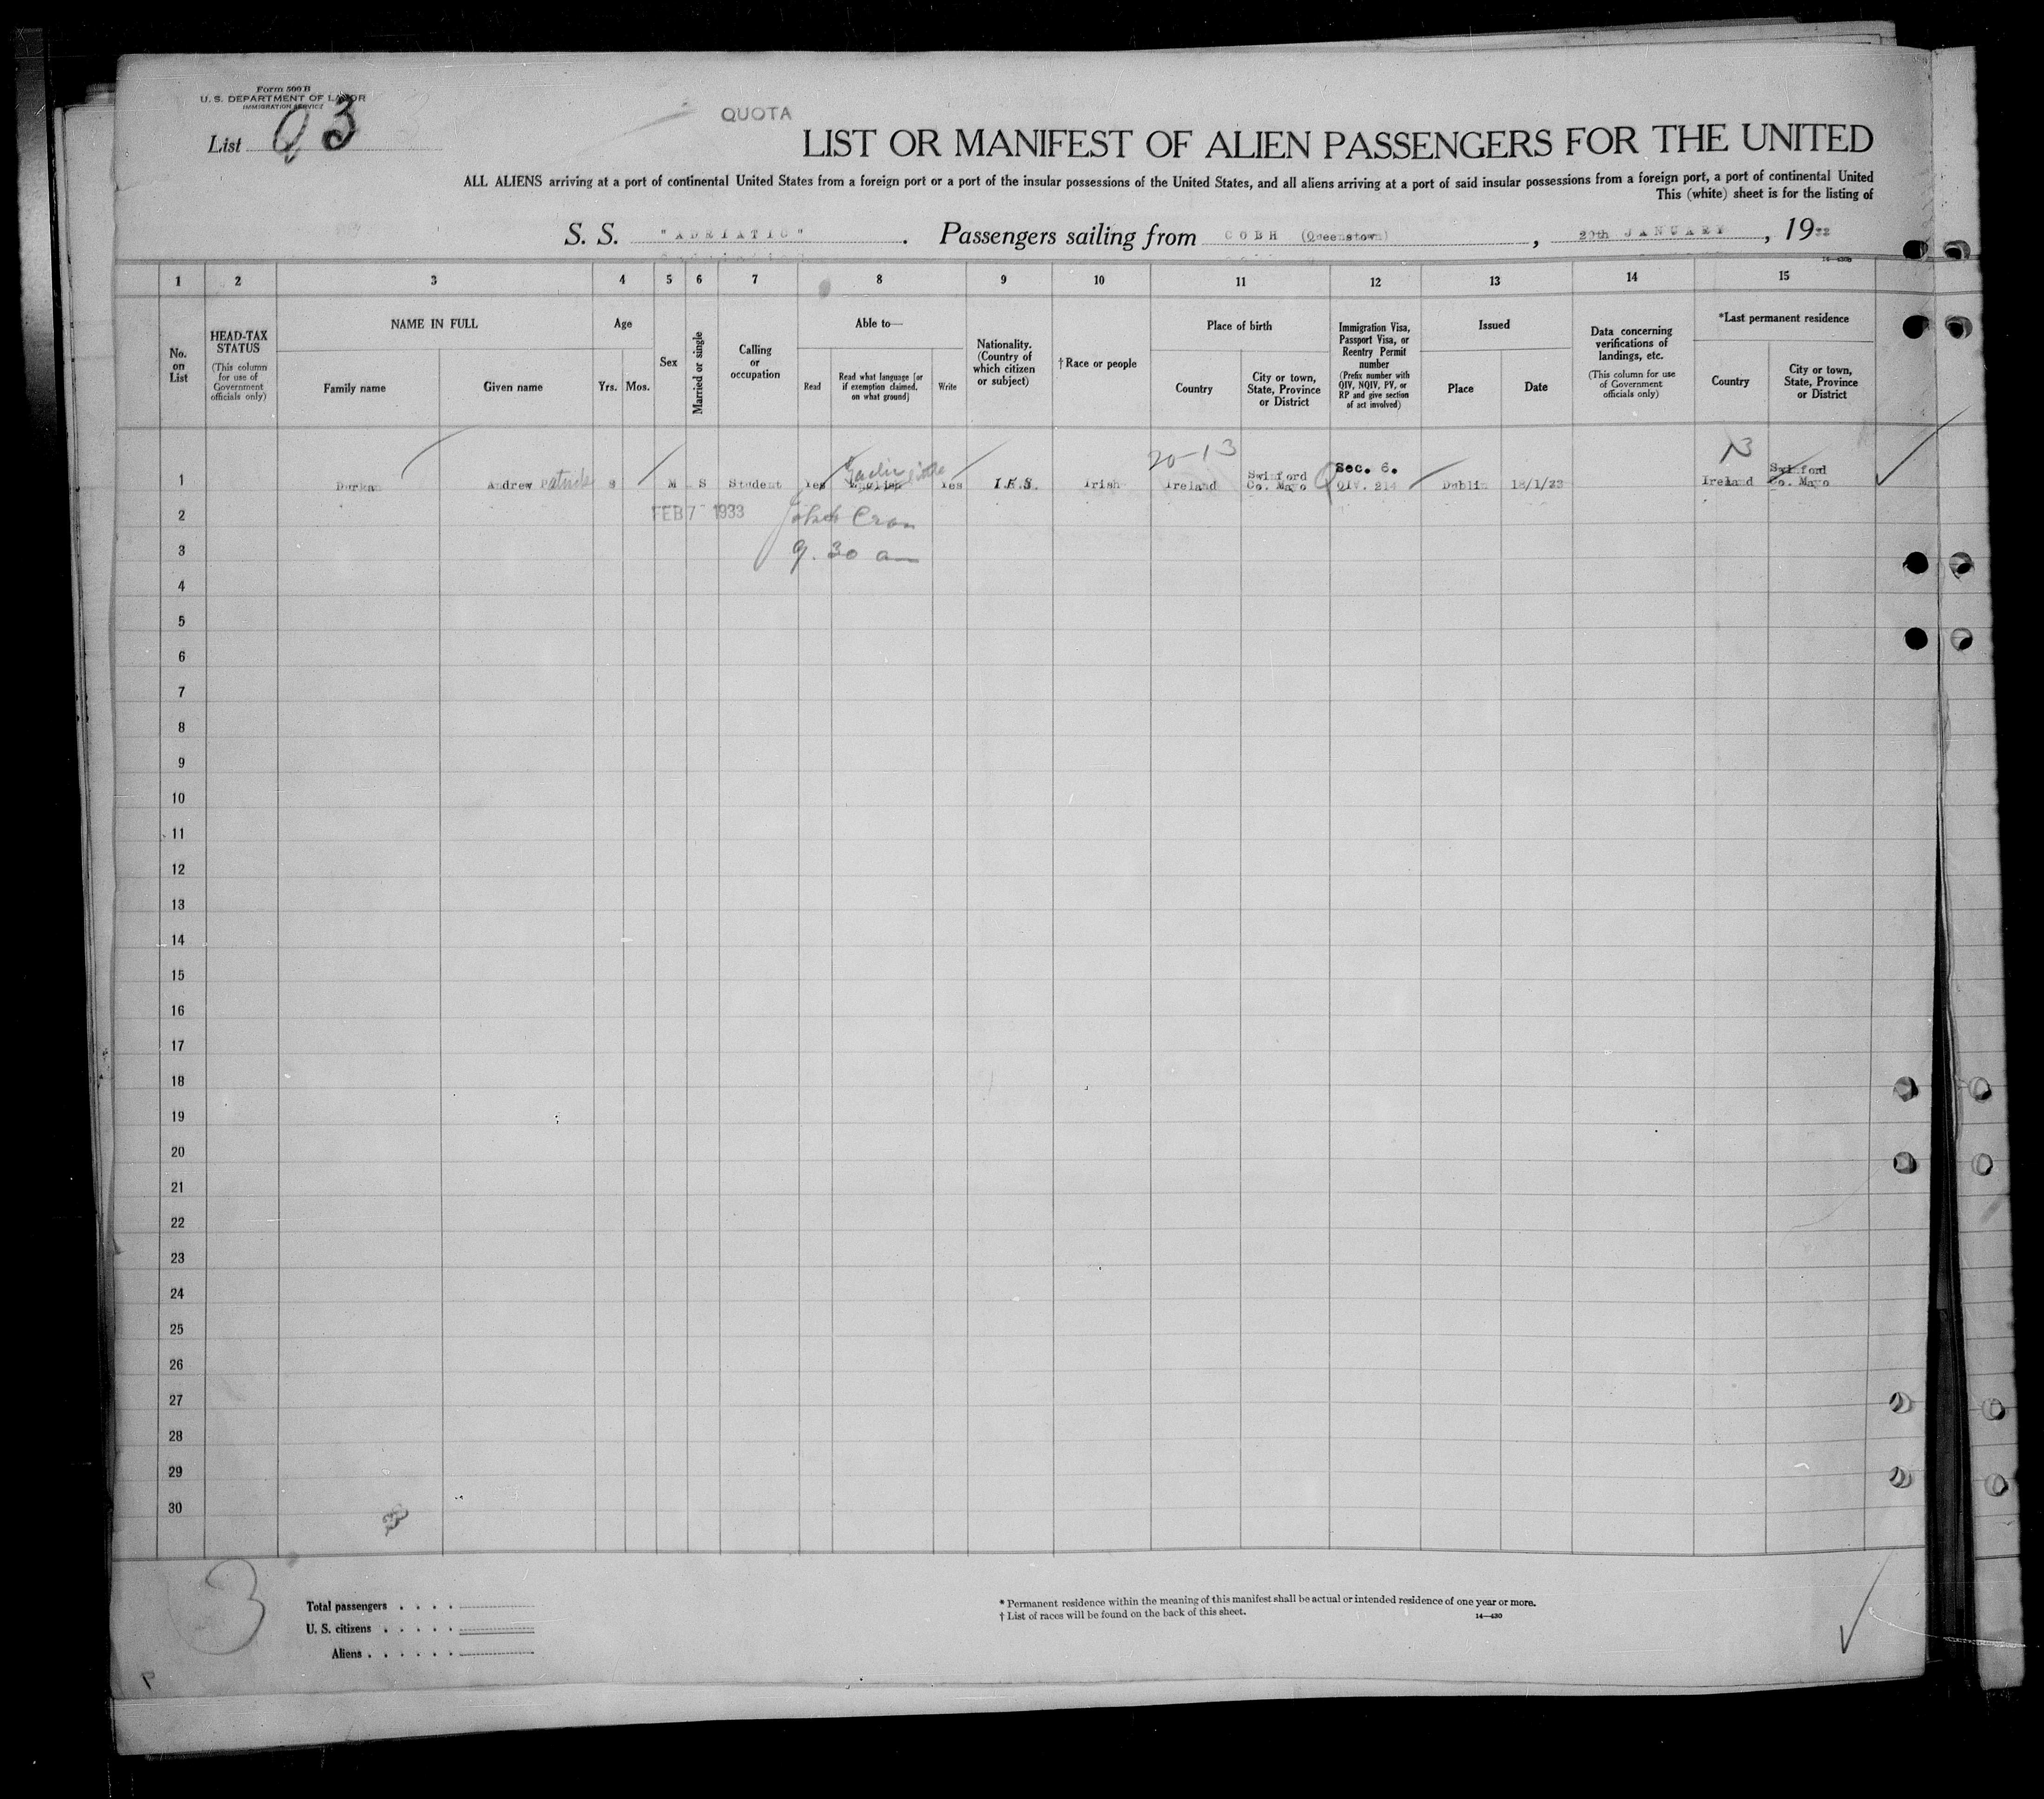 Form 500 B
U. S. DEPARTMENT OF LABOR
IMMIGRATION SERVICE
List Q 3
QUOTA
LIST OR MANIFEST OF ALIEN PASSENGERS FOR THE UNITED
ALL ALIENS arriving at a port of continental United States from a foreign port or a port of the insular possessions of the United States, and all aliens arriving at a port of said insular possessions from a foreign port, a port of continental United
This (white) sheet is for the listing of
S. S. "ADRIATIC". Passengers sailing from COBH (Queenstown), 29th JANUARY, 19
1 2 3 4 5 6 7 8 9 10 11 12 13 14 15
No. on List
HEAD-TAX STATUS
(This column for use of Government officials only)
NAME IN FULL
Family name
Given name
Age
Yrs. Mos.
Sex
Married or single
Calling or occupation
Able to—
Read
Read what language [or if exemption claimed, on what ground]
Write
Nationality. (Country of which citizen or subject)
†Race or people
Place of birth
Country
City or town, State, Province or District
Immigration Visa, Passport Visa, or Reentry Permit number
(Prefix number with QIV, NQIV, PV, or RP and give section of act involved)
Issued
Place
Date
Data concerning verifications of landings, etc.
(This column for use of Government officials only)
*Last permanent residence
Country
City or town, State, Province or District
20-13
1 Durkan Andrew Patrick M S Student Yes English Yes I.F.S. Irish Ireland Swinford Co. Mayo Sec. 6. QIV. 214 Dublin 18/1/33 Ireland Swinford Co. Mayo
2 FEB 7 1933
3 9.30 am
4
5
6
7
8
9
10
11
12
13
14
15
16
17
18
19
20
21
22
23
24
25
26
27
28
29
30
3
Total passengers . . . .
U. S. citizens . . . . .
Aliens . . . . . .
* Permanent residence within the meaning of this manifest shall be actual or intended residence of one year or more.
† List of races will be found on the back of this sheet.
14—430